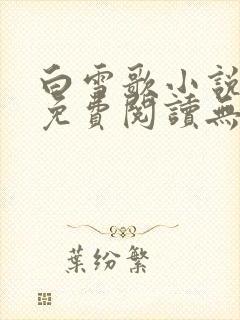 白雪歌小説
免費閱讀無
葉紛繁